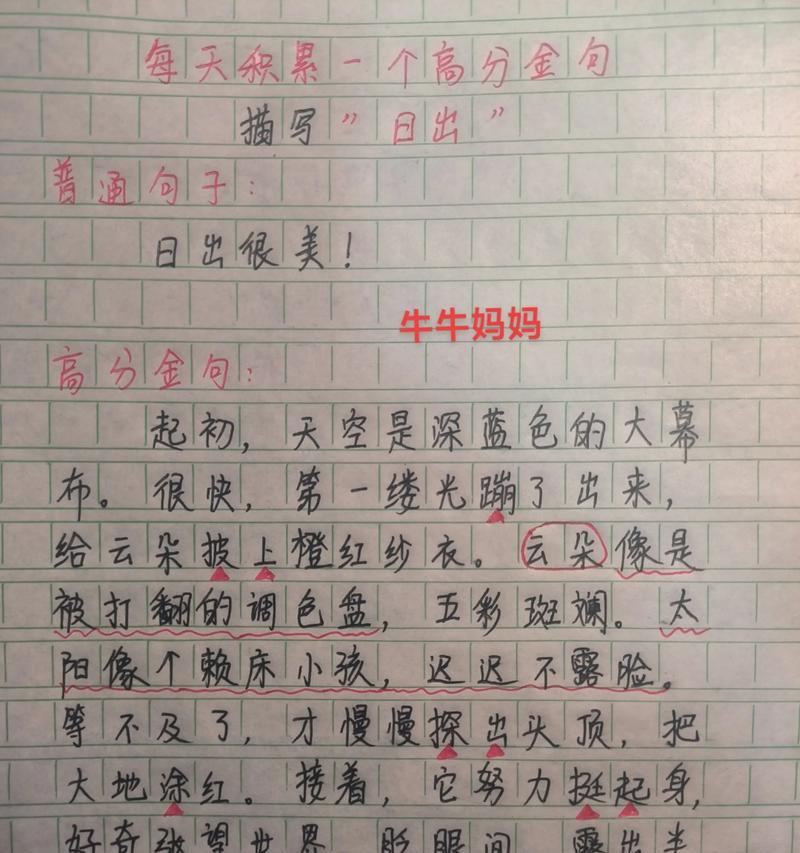 每天积累一个高分金句
描写"日出"
普通句子：
日出很美！
牛牛妈妈
高分金句：
起初，天空是深蓝色的大幕
布。很快，第一缕光蹦了出来，
给云朵披上橙红纱衣。云朵像是
被打翻的调色盘，五彩斑斓。太
阳像个赖床小孩，迟迟不露脸。
等不及了，才慢慢探出头顶，把
大地涂红。接着，它努力挺起身，
好奇张望世界。眨眼间，露出半